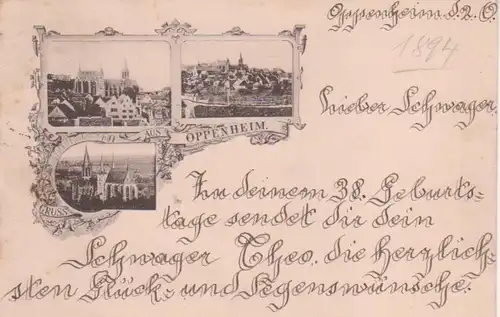 Oppenheim d. 2. 6.
1894
Lieber Schwager.
GRUSS AUS OPPENHEIM.
Zu deinem 38. Geburts-
tage sendet dir dein
Schwager Theo. die herzlich-
sten Glück- und Segenswünsche.